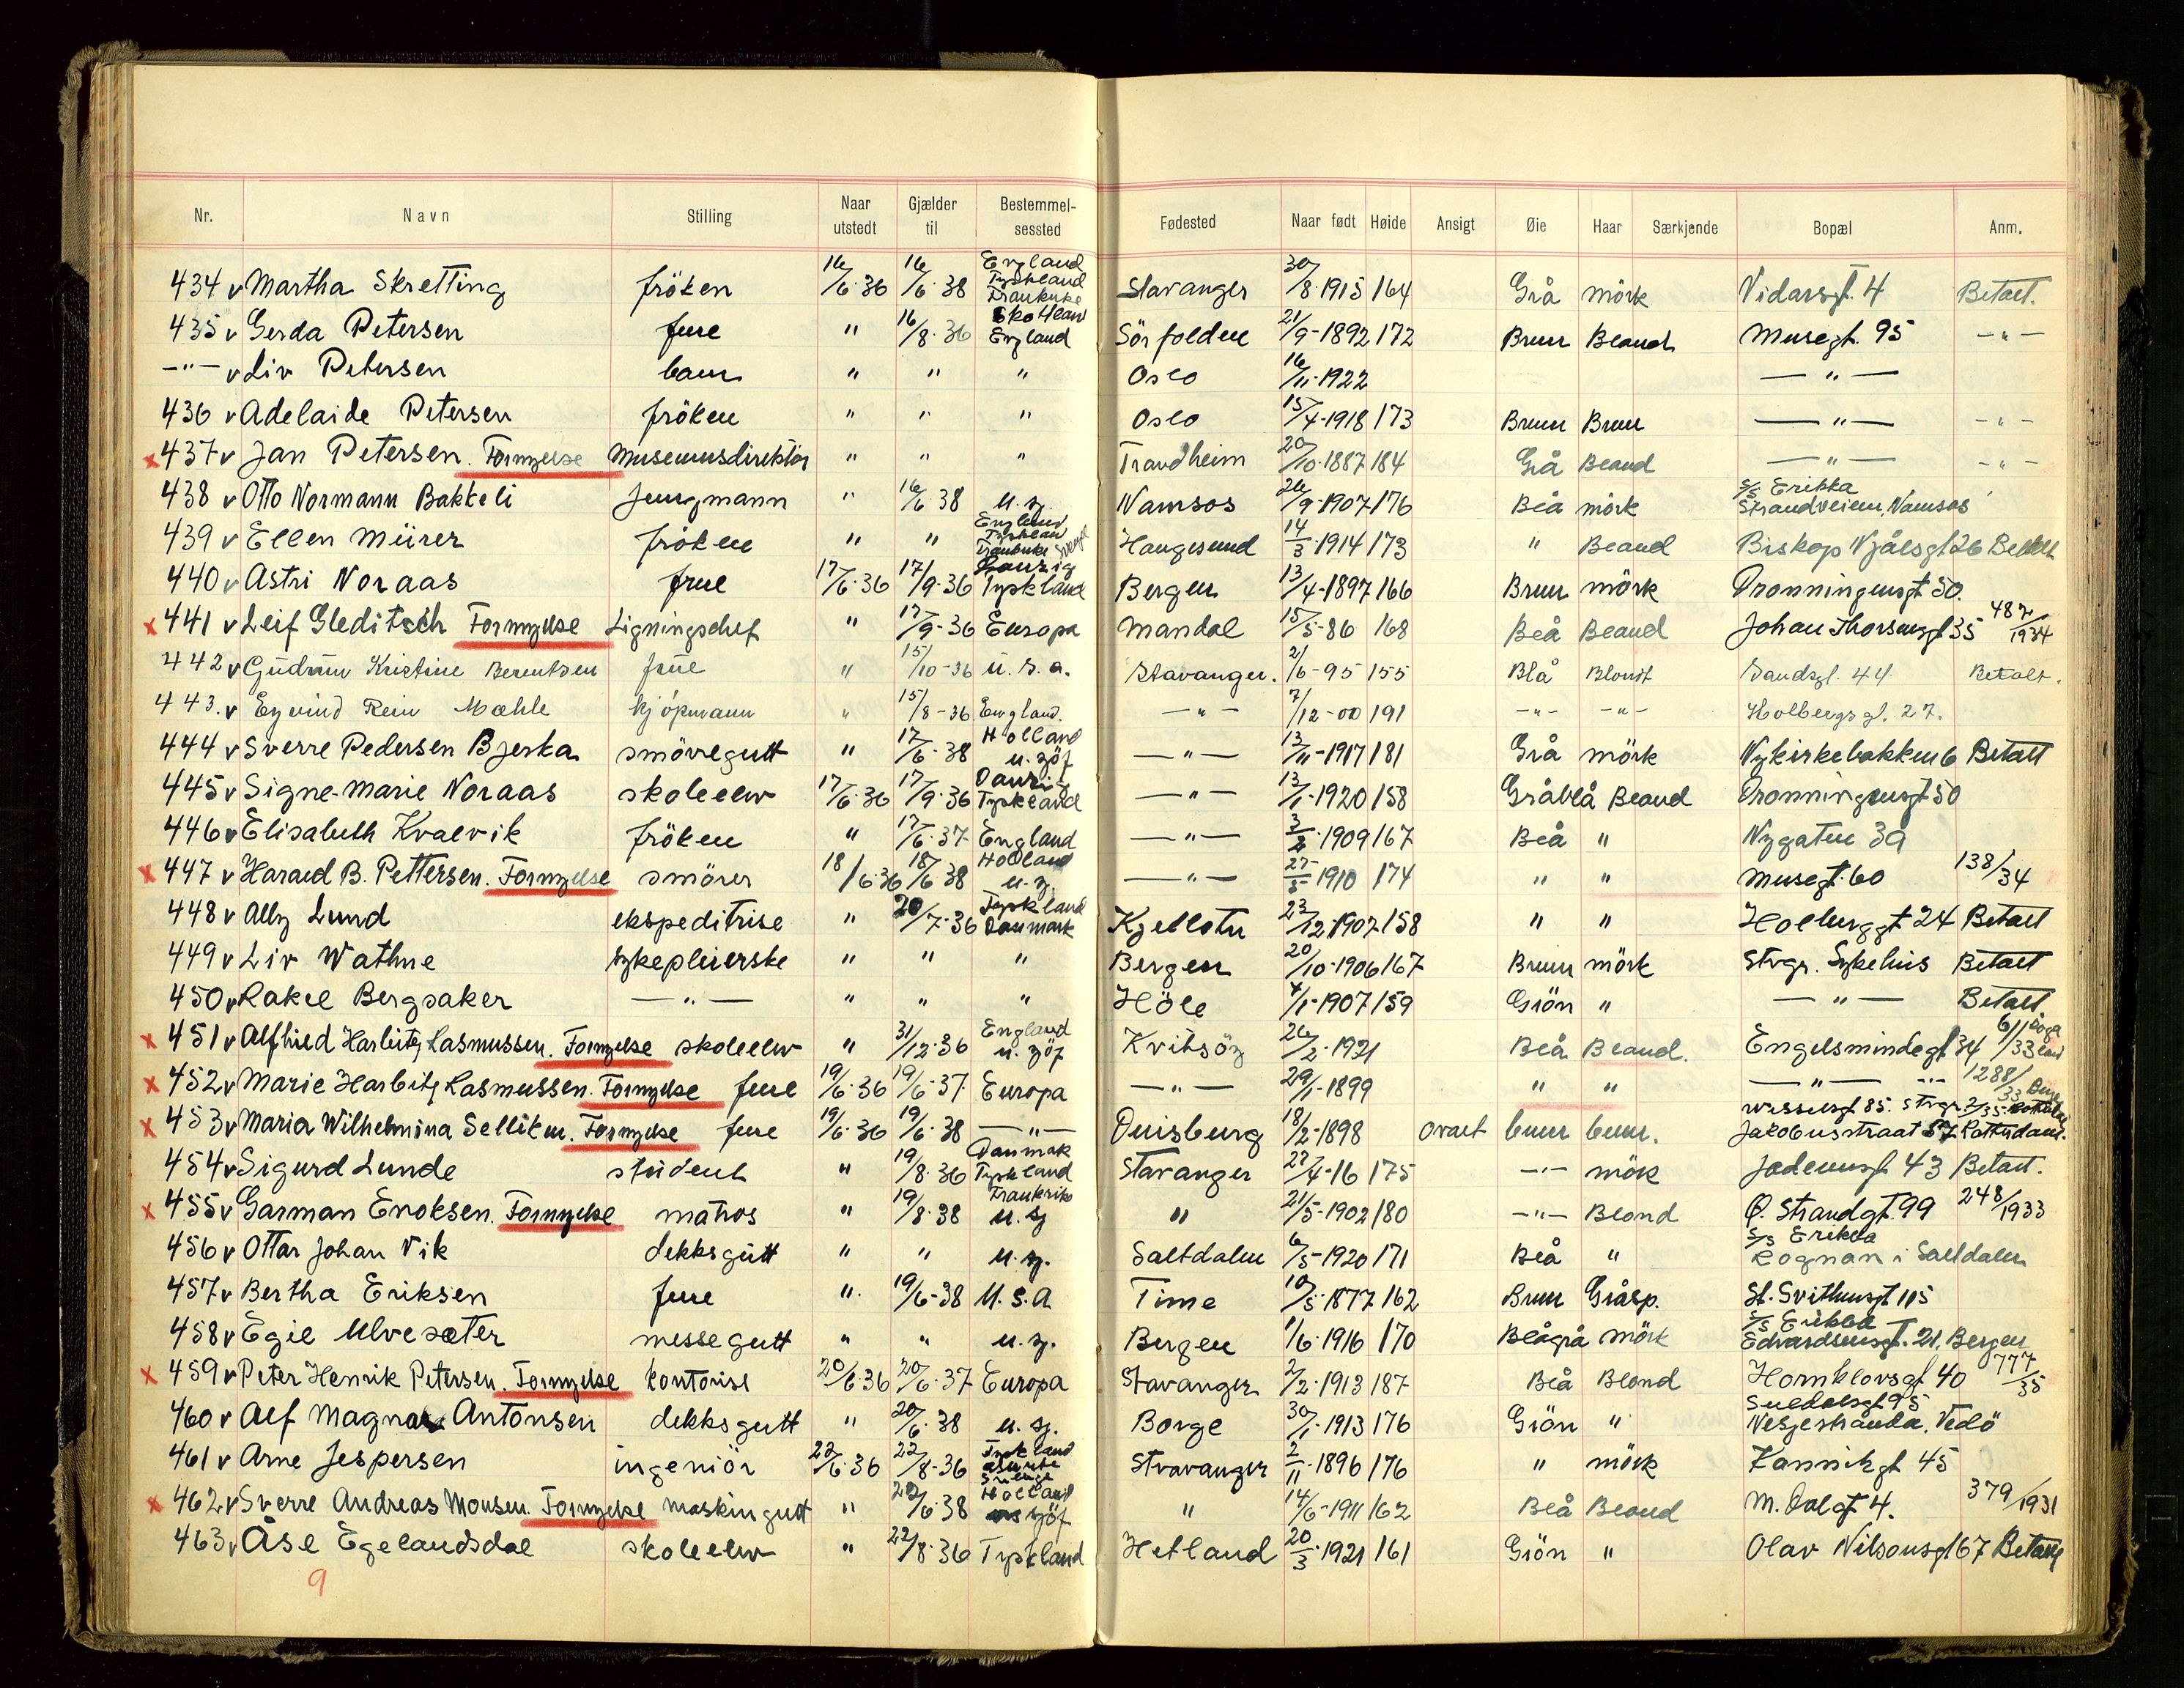 Nr. Navn Stilling Naar utstedt Gjælder til Bestemmel-sessted Fødested Naar født Høide Ansigt Øie Haar Særkjende Bopæl Anm.
434 v Martha Skretting fröken 16/6-36 16/6-38 England Tyskland Frankrike Stavanger 30/8-1915 164 Grå mörk Vidarsgt. 4 Betalt.
435 v Gerda Petersen frue " 16/8-36 Skottland England Sörfolden 21/9-1892 172 Brun Bland Musegt. 95 -"-
-"- v Liv Petersen barn " " " Oslo 16/11-1922 -"-
436 v Adelaide Petersen fröken " " " Oslo 15/4-1918 173 Brun Brun -"- -"-
x 437 v Jan Petersen. Fornyelse Museumsdirektör " " " Trondheim 20/10-1887 184 Grå Bland -"- -"-
438 v Otto Normann Bakkeli Jungmann " 16/6-38 u.sj. Namsos 26/9-1907 176 Blå mörk S/S Erikka Strandveien, Namsos
439 v Ellen Mürer fröken " " England Tyskland Frankrike Haugesund 14/3-1914 173 " Bland Biskop Njålsgt 26 Betalt
440 v Astri Noraas frue 17/6-36 17/9-36 Danzig Tyskland Bergen 13/4-1897 166 Brun mörk Dronningensgt 50.
x 441 v Leif Gleditsch Fornyelse Ligningschef " 17/9-36 Europa Mandal 15/5-86 168 Blå Bland Johan Thorsensgt 35 487/1934
442 v Gudrun Kristine Berentsen frue " 15/10-36 U.S.A. Stavanger. 2/6-95 155 Blå Blondt Sandsgt. 44 Betalt.
443. v Eyvind Rein Mæhle kjöpmann " 15/8-36 England. -"- 7/12-00 191 -"- -"- Holbergsgt. 27.
444 v Sverre Pedersen Bjerka smöregutt " 17/6-38 Holland u.sjöf -"- 13/11-1917 181 Grå mörk Nykirkebakken 6 Betalt
445 v Signe-Marie Noraas skoleelev 17/6-36 17/9-36 Danzig Tyskland -"- 13/1-1920 158 Gråblå Bland Dronningensgt 50
446 v Elisabeth Kvalvik fröken " 17/6-37 England -"- 3/2-1909 167 Blå " Nygaten 39
x 447 v Harald B. Pettersen. Fornyelse smörer 18/6-36 18/6-38 Holland u.sj. -"- 27/5-1910 174 " " Musegt. 60 138/34
448 v Ally Lund ekspeditrise " 20/7-36 Tyskland Danmark 23/12-1907 158 " " Holbergsgt 24 Betalt
449 v Liv Wathne sykepleierske " " " Bergen 20/10-1906 167 Brun mörk Stvgr. Sykehus Betalt
450 v Rakel Bergsaker -"- " " " Höle 4/1-1907 159 Grön " -"- Betalt.
x 451 v Alfhild Harbitz Rasmussen. Fornyelse skoleelev " 31/12-36 England u.sjöf Kvitsöy 26/2-1921 Blå Bland. Engelsmindegt 34 611/33
x 452 v Marie Harbitz Rasmussen. Fornyelse frue 19/6-36 19/6-37 Europa -"- 29/1-1899 " " -"- 1288/33
x 453 v Maria Wilhelmina Selliken. Fornyelse frue 19/6-36 19/6-38 -"- Duisburg 18/2-1898 ovalt brun brun. Wesselsgt 85. Stvgr 2/35 Jakobusstraat 57 Rotterdam.
454 v Sigurd Lunde student " 19/8-36 Danmark Tyskland Stavanger 27/4-16 175 -"- mök Jadarensgt 43 Betalt.
x 455 v Garman Enoksen. Fornyelse matros " 19/8-38 Frankrike u.sj " 21/5-1902 180 -"- Blond Ø. Strandgt. 99 248/1933
456 v Ottar Johan Vik dekksgutt " " u.sj. Saltdalen 6/5-1920 171 Blå " S/S Erikka Rognan i Saltdalen
457 v Bertha Eriksen frue " 19/6-38 U.S.A Time 10/5-1877 162 Brun Gråsp. St. Svithunsgt 115
458 v Egil Ulvesæter messegutt " " u.sj. Bergen 1/6-1916 170 Blågrå mörk S/S Erikka Edvardsensgt. 21, Bergen
x 459 v Peter Henrik Petersen. Fornyelse kontorist 20/6-36 20/6-37 Europa Stavanger 2/2-1913 187 Blå Blond Hornklovsgt 40 777/35
460 v Alf Magnar Antonsen dekksgutt " 20/6-38 u.sj. Borge 30/1-1913 176 Grön " Suldalsgt 95 Nesjestranda, Vedö
461 v Arne Jespersen ingeniör 22/6-36 22/8-36 Tyskland Sverige Stravanger 2/11-1896 176 " mörk Kannikgt 45
x 462 v Sverre Andreas Monsen. Fornyelse maskingutt " 22/6-38 Holland sjöf " 14/6-1911 162 Blå Bland M. Dalgt 4. 379/1931
463 v Åse Egelandsdal skoleelev " 22/8-36 Tyskland Hetland 20/3-1921 161 Grön " Olav Nilsonsgt 67 Betalt
9